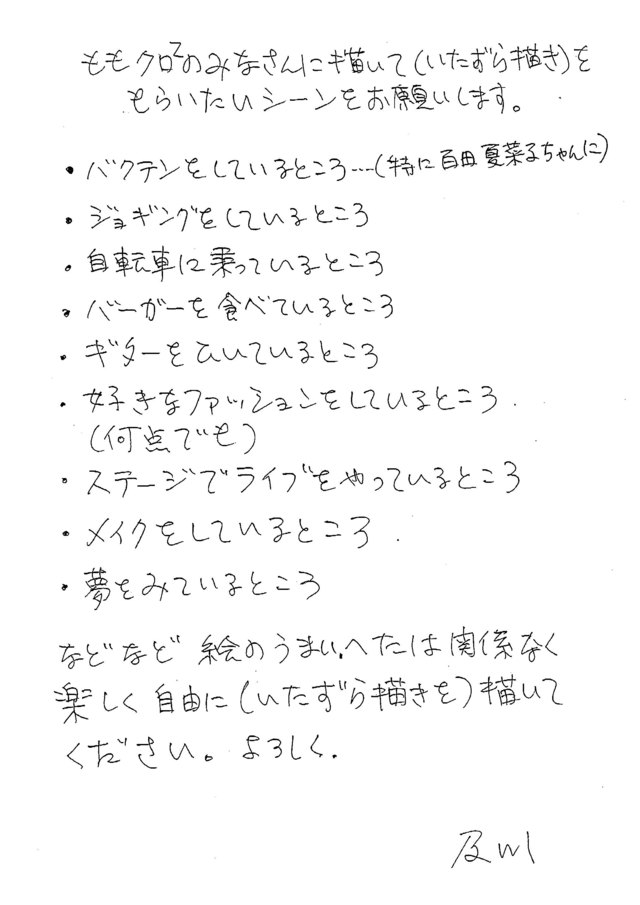 ももクロZのみなさんに描いて(いたずら描き)を
もらいたいシーンをお願いします。
・バクテンをしているところ…(特に百田夏菜子ちゃんに)
・ジョギングをしているところ
・自転車に乗っているところ
・バーガーを食べているところ
・ギターをひいているところ
・好きなファッションをしているところ.
(何点でも)
・ステージでライブをやっているところ
・メイクをしているところ.
・夢をみているところ
などなど 絵のうまい、へたは関係なく
楽しく自由に(いたずら描きを)描いて
ください。よろしく.
及川